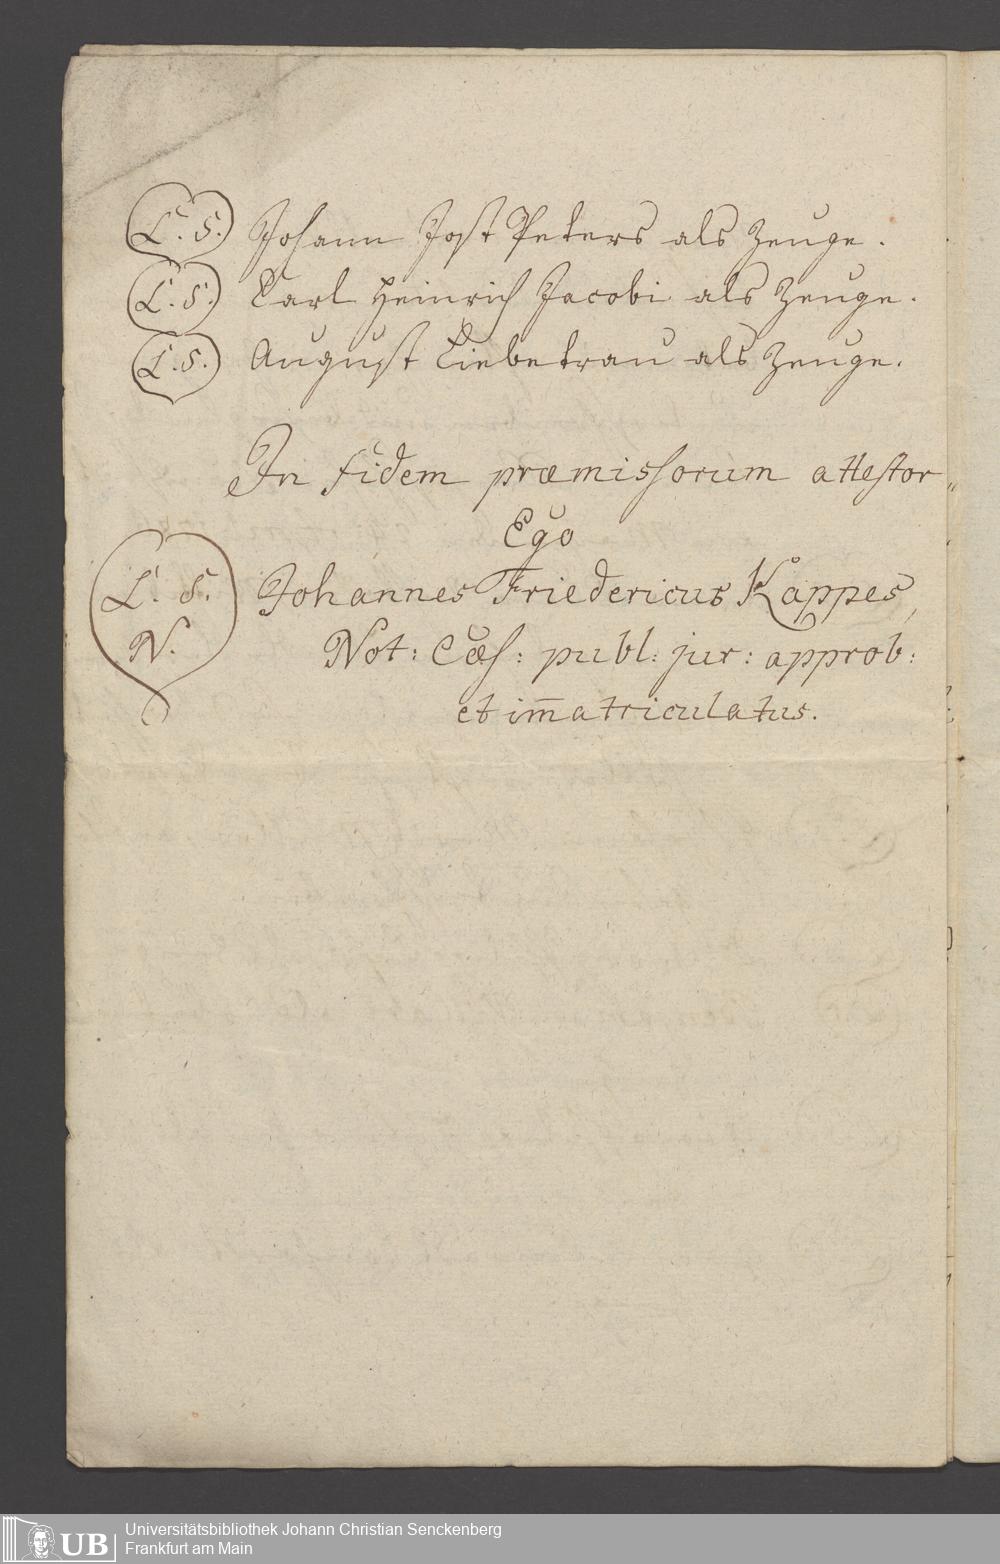 L. S. Johann Jost Peters als Zeuge.
L. S. Carl Heinrich Jacobi als Zeuge.
L. S. August Liebetrau als Zeuge.
In fidem præmissorum attestor„
Ego
L. S. Johannes Friedericus Kappes,
N. Not: Cæs: publ: jur: approb:
et im̅atriculatus.
UB Universitätsbibliothek Johann Christian Senckenberg
Frankfurt am Main